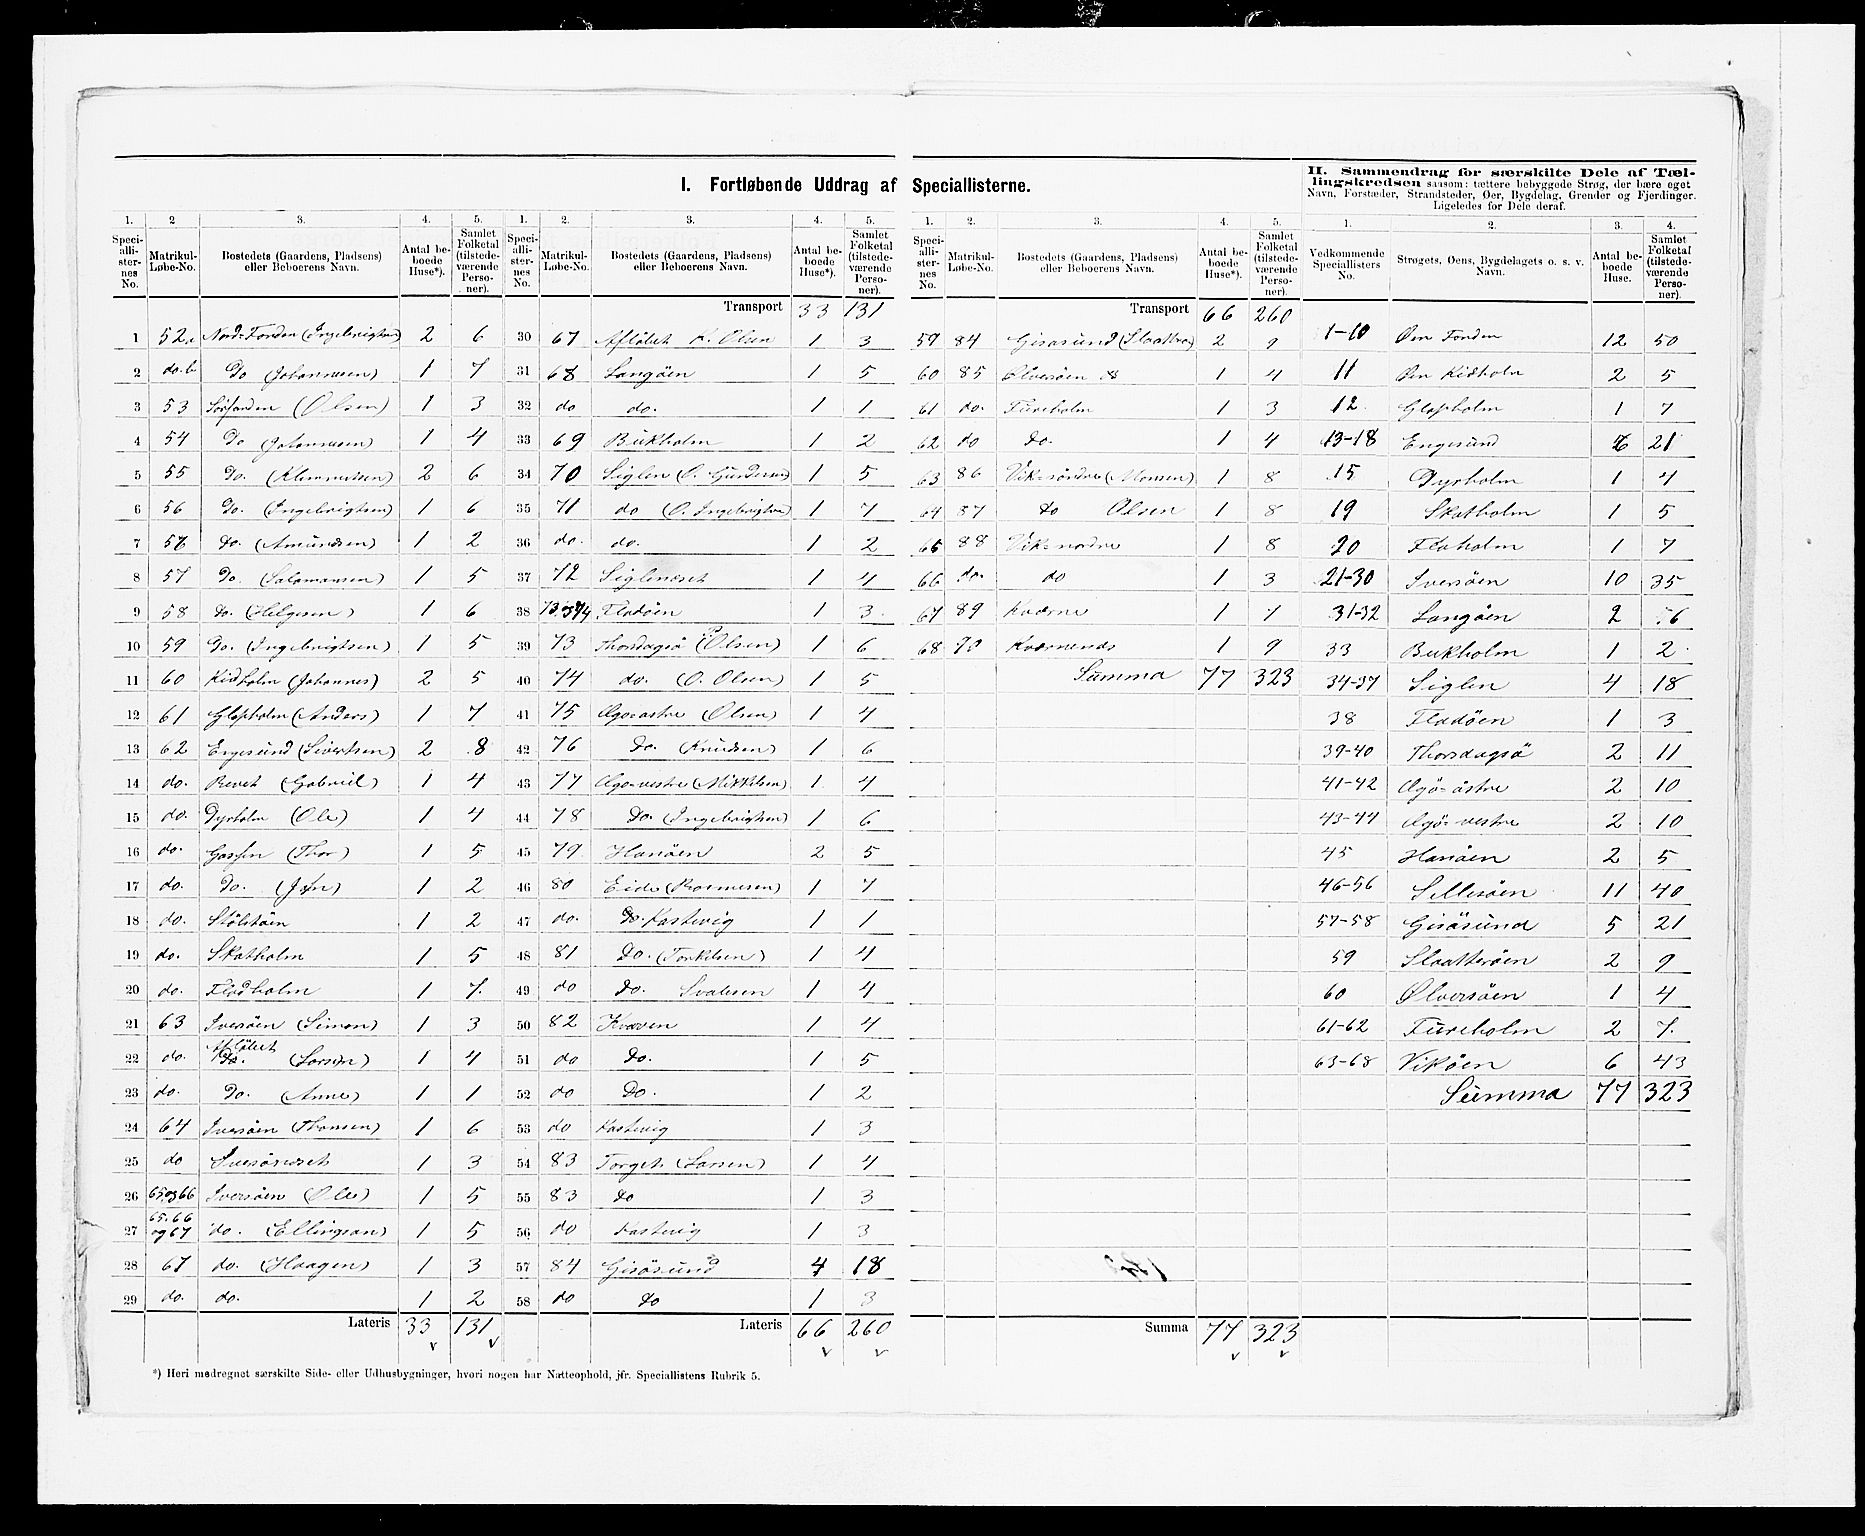 I. Fortløbende Uddrag af Speciallisterne.
II. Sammendrag for særskilte Dele af Tællingskredsen saasom: tættere bebyggede Strøg, der bære eget
Navn, Forstæder, Strandsteder, Øer, Bygdelag, Grender og Fjerdinger.
Ligeledes for Dele deraf.
1. 2 3. 4. 5.
Speciallisternes No. Matrikul-Løbe-No. Bostedets (Gaardens, Pladsens) eller Beboerens Navn. Antal beboede Huse*). Samlet Folketal (tilstedeværende Personer).
1 52a Nord-Fonden (Ingebrigtsen) 2 6
2 do. b Do (Johannesen) 1 7
3 53 Sørfonden (Olsen) 1 3
4 54 Do (Johannesen) 1 4
5 55 Do. (Klemmetsen) 2 6
6 56 Do. (Ingebrigtsen) 1 6
7 56 Do. (Amundsen) 1 2
8 57 Do. (Salamonsen) 1 5
9 58 Do. (Helgesen) 1 6
10 59 Do. (Ingebrigtsen) 1 5
11 60 Kidholm (Johannes) 2 5
12 61 Glopholm (Anders) 1 7
13 62 Engesund (Sivertsen) 2 8
14 do. Revet (Gabriel) 1 4
15 do. Dyrholm (Ole) 1 4
16 do. (Thor) 1 5
17 do. Do. 1 2
18 do. 1 2
19 do. Skatholm 1 5
20 do. Flodholm 1 7
21 63 Iversöen (Simon) 1 3
22 do. Afløbet Do. 1 4
23 do. Do. (Anne) 1 1
24 64 Iversöen (Thomsen) 1 6
25 do Iversöneset 1 3
26 65 og 66 Iversöen (Ole) 1 5
27 65. 66 og 67 do. (Ellingsen) 1 5
28 67 do. (Haagen) 1 3
29 do. do. 1 2
Lateris 33 131
1. 2. 3. 4. 5.
Speciallisternes No. Matrikul-Løbe-No. Bostedets (Gaardens, Pladsens) eller Beboerens Navn. Antal beboede Huse*). Samlet Folketal (tilstedeværende Personer).
Transport 33 131
30 67 Afløbet K. Olsen 1 3
31 68 Langöen 1 5
32 do do. 1 1
33 69 Bukholm 1 2
34 70 Siglen (O. Gundersen) 1 5
35 71 do (O. Ingebrigtsen) 1 7
36 do. do. 1 2
37 72 Sigleneset 1 4
38 73 og 74 Fladöen 1 3
39 73 Thorsdagsö (P Olsen) 1 6
40 74 do. (O. Olsen) 1 5
41 75 Ægö-østre (Olsen) 1 4
42 76 Do. (Knudsen) 1 6
43 77 Ægö-vestre (Mikkelsen) 1 4
44 78 Do. (Ingebrigtsen) 1 6
45 79 Hanöen 2 5
46 80 Eide (Rasmusen) 1 7
47 do. Do. Kastevig 1 1
48 81 Do. (Torkilsen) 1 4
49 do Do. 1 4
50 82 Kvæven 1 4
51 do Do. 1 5
52 do Do. 1 2
53 do Kastevig 1 3
54 83 Torget (Larsen) 1 4
55 83 Do 1 3
56 do Kastevig 1 3
57 84 Gisösund 4 18
58 do Do 1 3
Lateris 66 260
1. 2. 3. 4. 5.
Speciallisternes No. Matrikul-Løbe-No. Bostedets (Gaardens, Pladsens) eller Beboerens Navn. Antal beboede Huse*). Samlet Folketal (tilstedeværende Personer).
Transport 66 260
59 84 Gisøsund (Slaatterø) 2 9
60 85 Ølversöen 1 4
61 do. Fureholm 1 3
62 do Do. 1 4
63 86 Vik-söndre (Monsen) 1 8
64 87 Do Olsen 1 8
65 88 Vik-nordre 1 8
66 do. do 1 3
67 89 Kværne 1 7
68 90 Kværnenes 1 9
Summa 77 323
Summa 77 323
1. 2. 3. 4.
Vedkommende Speciallisters No. Strøgets, Øens, Bygdelagets o. s. v. Navn. Antal beboede Huse. Samlet Folketal (tilstedeværende Personer).
1-10 Øen Fonden 12 50
11 Øen Kidholm 2 5
12. Glopholm 1 7
13-18 Engesund 6 21
15 Dyrholm 1 4
19 Skatholm 1 5
20 Floholm 1 7
21-30 Iversöen 10 35
31-32 Langöen 2 6
33 Bukholm 1 2
34-37 Siglen 4 18
38 Fladöen 1 3
39-40 Thorsdagsö 2 11
41-42 Ægö-östre 2 10
43-44 Ægö-vestre 2 10
45 Hanöen 2 5
46-56 Sillesöen 11 40
57-58 Gisösund 5 21
59 Slaatteröen 2 9
60 Ølversöen 1 4
61-62 Fureholm 2 7
63-68 Viköen 6 43
Summa 77 323
*) Heri medregnet særskilte Side- eller Udhusbygninger, hvori nogen har Natteophold, jfr. Speciallistens Rubrik 5.